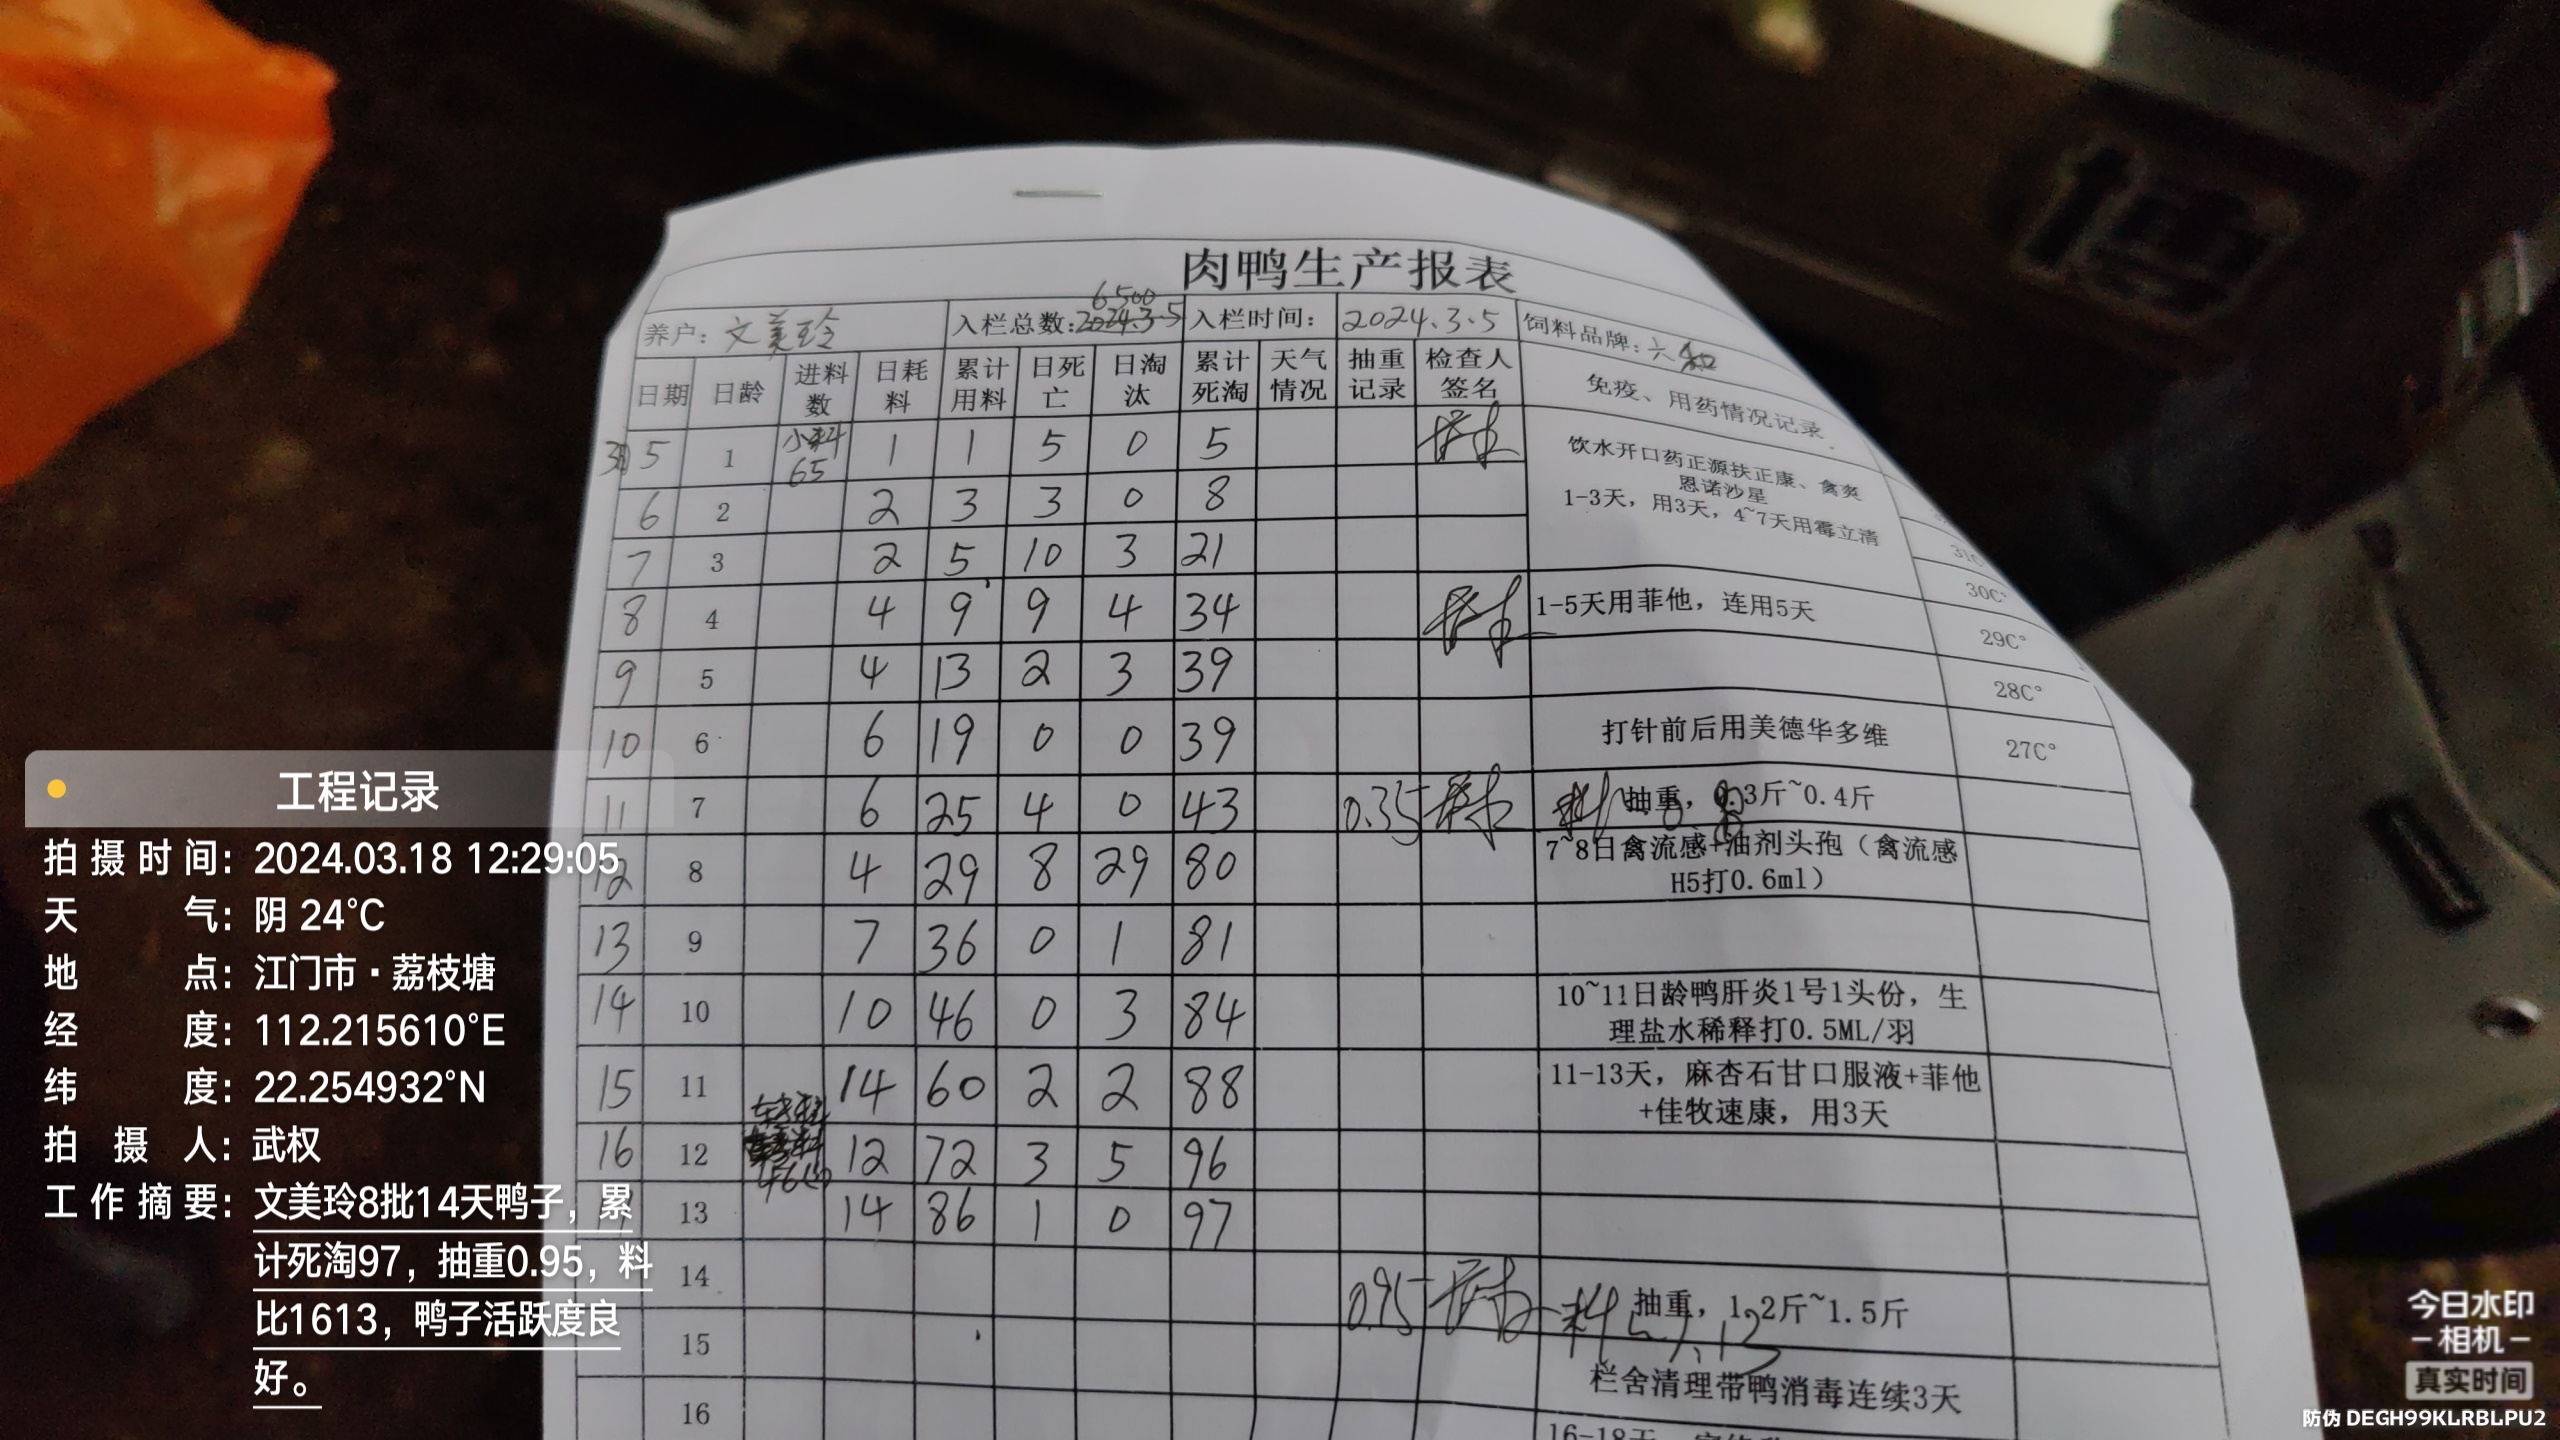 肉鸭生产报表
养户：文美玲 入栏总数：6500 2024.3.5 入栏时间： 2024.3.5 饲料品牌：六和
日期 日龄 进料数 日耗料 累计用料 日死亡 日淘汰 累计死淘 天气情况 抽重记录 检查人签名 免疫、用药情况记录
5 1 小料65 1 1 5 0 5
饮水开口药正源扶正康、禽炎
恩诺沙星
1-3天，用3天，4~7天用霉立清
6 2 2 3 3 0 8
7 3 2 5 10 3 21 31C°
30C°
8 4 4 9 9 4 34 1-5天用菲他，连用5天 29C°
9 5 4 13 2 3 39 28C°
10 6 6 19 0 0 39 打针前后用美德华多维 27C°
11 7 6 25 4 0 43 0.35 抽重，0.3斤~0.4斤
12 8 4 29 8 29 80 7~8日禽流感+油剂头孢（禽流感
H5打0.6ml）
13 9 7 36 0 1 81
14 10 10 46 0 3 84 10~11日龄鸭肝炎1号1头份，生
理盐水稀释打0.5ML/羽
15 11 14 60 2 2 88 11-13天，麻杏石甘口服液+菲他
+佳牧速康，用3天
16 12 12 72 3 5 96
13 14 86 1 0 97
14 0.95 抽重，1.2斤~1.5斤
料 1.613
15 栏舍清理带鸭消毒连续3天
16
工程记录
拍摄时间：2024.03.18 12:29:05
天气：阴 24℃
地点：江门市·荔枝塘
经度：112.215610°E
纬度：22.254932°N
拍摄人：武权
工作摘要：文美玲8批14天鸭子，累
计死淘97，抽重0.95，料
比1613，鸭子活跃度良
好。
今日水印
相机
真实时间
防伪 DEGH99KLRBLPU2